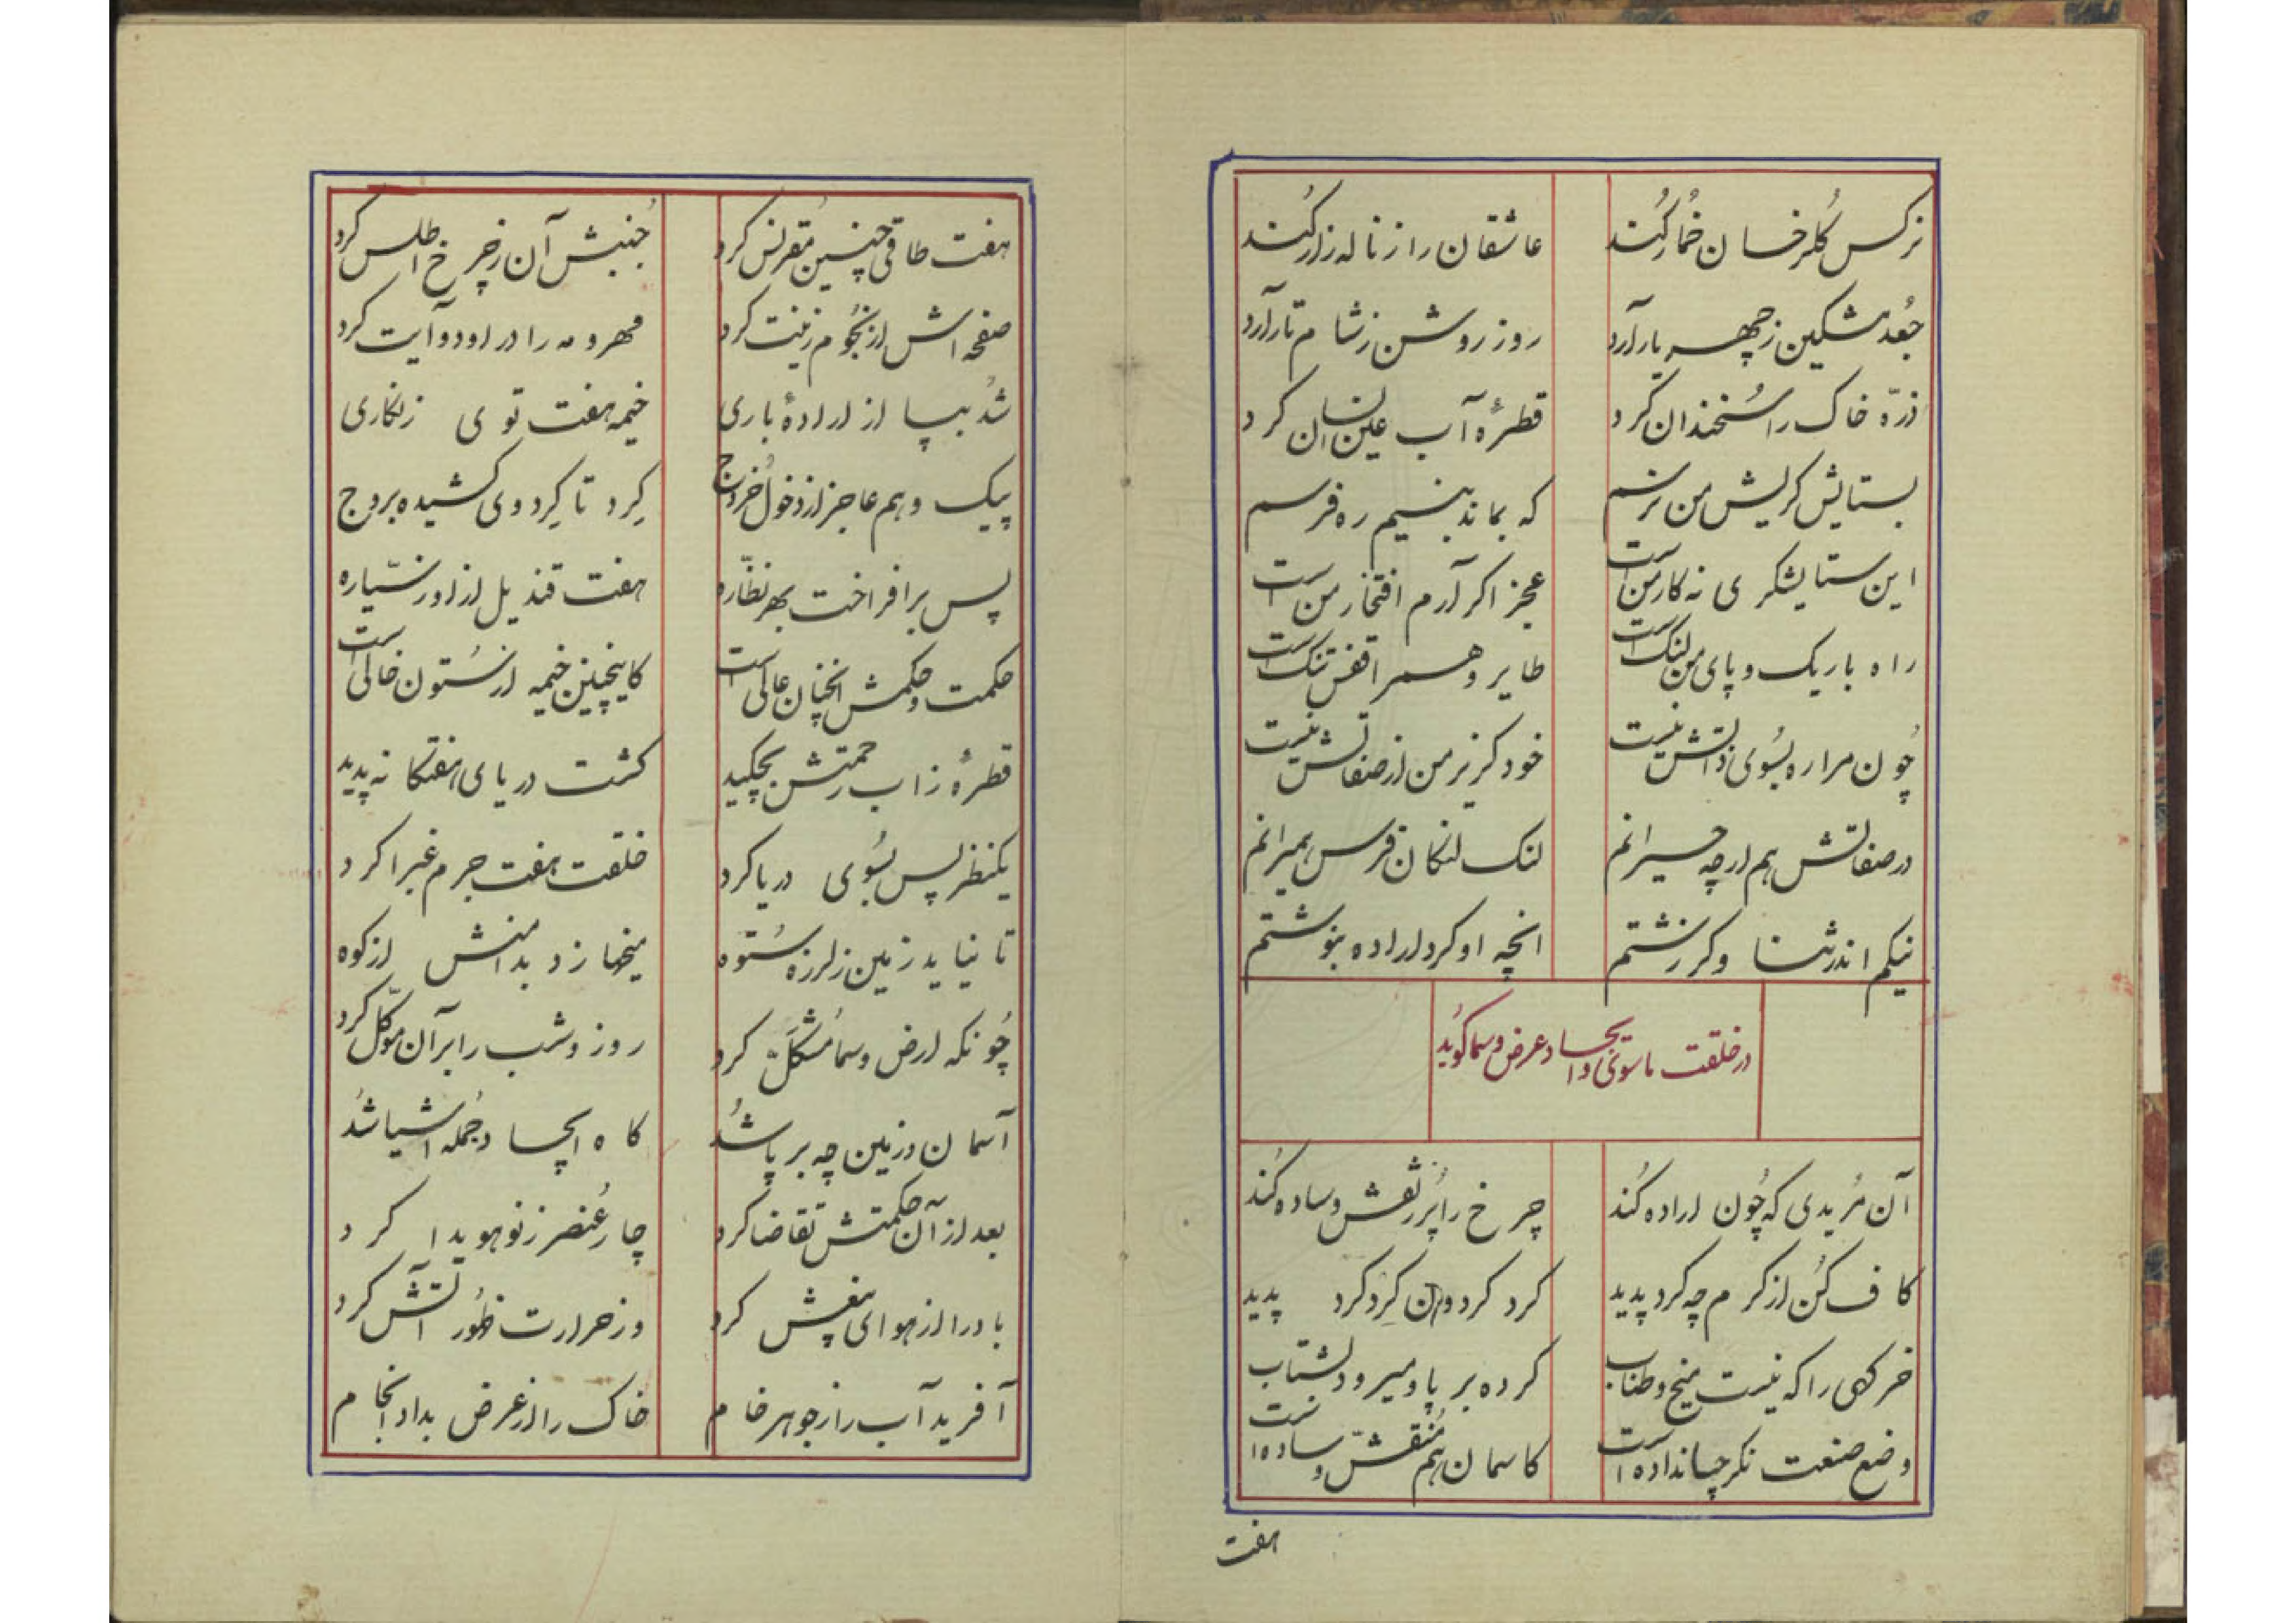 نرکس کلرخسان خمار کند عاشقان را ز ناله زار کند
جعد مشکین ز چهر یار آرد روز روشن ز شام تار آرد
ذرّه خاک را سخندان کرد قطرهٔ آب عین انسان کرد
بستایش کریش من نرسم که بماند بنیم ره فرسم
این ستایشکری نه کار من است عجز اکر آرم افتخار من است
راه باریک و پای من لنک است طایر وهم را قفس تنک است
چون مرا ره بسوی ذاتش نیست خود کزیر من از صفاتش نیست
در صفاتش هم ار چه حیرانم لنک لنکان فرس همیرانم
نیکم اندر ثنا و کر زشتم انچه او کرد اراده بنوشتم
در خلقت ماسوی و ایجاد عرض و سما کوید
آن مریدی که چون اراده کند چرخ را پر ز نقش و ساده کند
کاف کن از کرم چه کرد پدید کرد کردون کرد کرد پدید
خرکهی را که نیست میخ و طناب کرده بر پا و میرود بشتاب
وضع صنعت نکر چسان داده است کاسمان هم منقش و ساده است
هفت
هفت طاقی چنین مقرنس کرد جنبش آن ز چرخ اطلس کرد
صفحه اش از نجوم زینت کرد مهر و مه را در او دو آیت کرد
شد بپا از ارادهٔ باری خیمه هفت توی زنکاری
پیک وهم عاجز از دخول خروج کرد تا کرد وی کشیده بروج
پس برافراخت بهر نظاره هفت قندیل از او ز سیّاره
حکمت و حکمش انچنان عالی است کاینچنین خیمه از ستون خالی است
قطرهٔ ز اب رحمتش بچکید کشت دریای هفتکانه پدید
یکنظر پس بسوی دریا کرد خلقت هفت جرم غبرا کرد
تا نیاید زمین ز لرزه ستوه میخها زد بدامنش از کوه
چونکه ارض و سما مشکّل کرد روز و شب را بر آن موکّل کرد
آسمان و زمین چه بر پا شد کاه ایجاد جمله اشیا شد
بعد از آن حکمتش تقاضا کرد چار عنصر ز نو هویدا کرد
باد را از هوای نفسش کرد وز حرارت ظهور آتش کرد
آفرید آب را ز جوهر خام خاک را از عرض بداد انجام